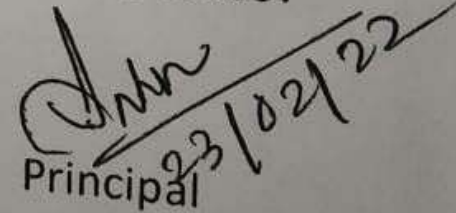 23/02/22
Principal